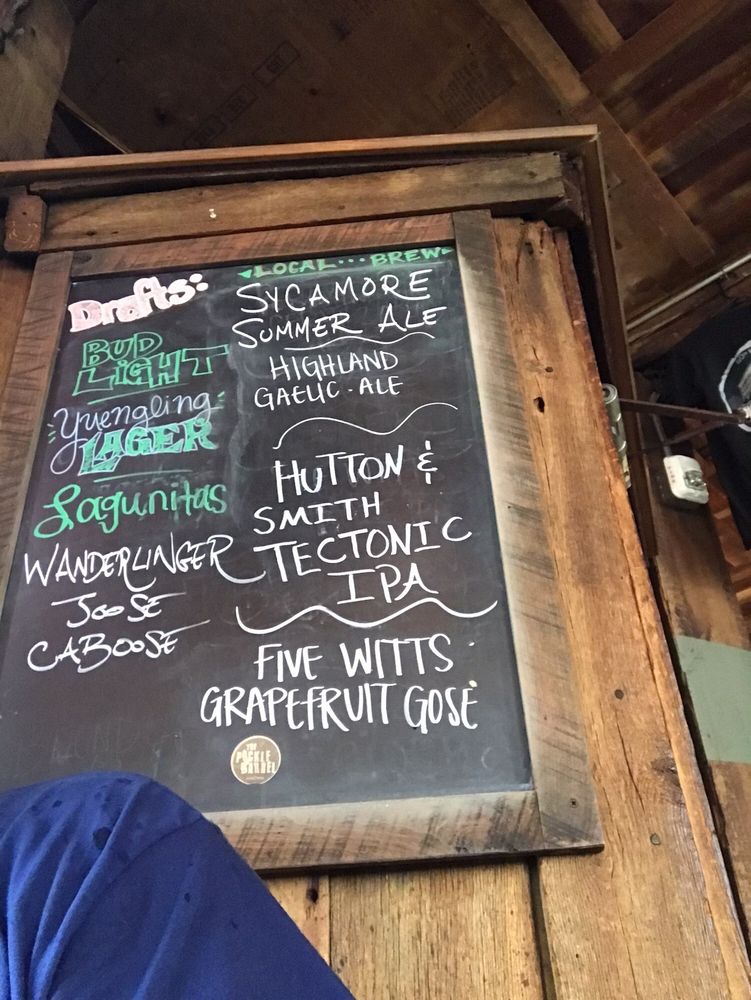 Drafts:
BUD
LIGHT
Yuengling
LAGER
Lagunitas
WANDERLINGER
JOOSE
CABOOSE
LOCAL... BREW
SYCAMORE
SUMMER ALE
HIGHLAND
GAELIC-ALE
HUTTON &
SMITH
TECTONIC
IPA
FIVE WITTS
GRAPEFRUIT GOSE
THE
PICKLE
BARREL